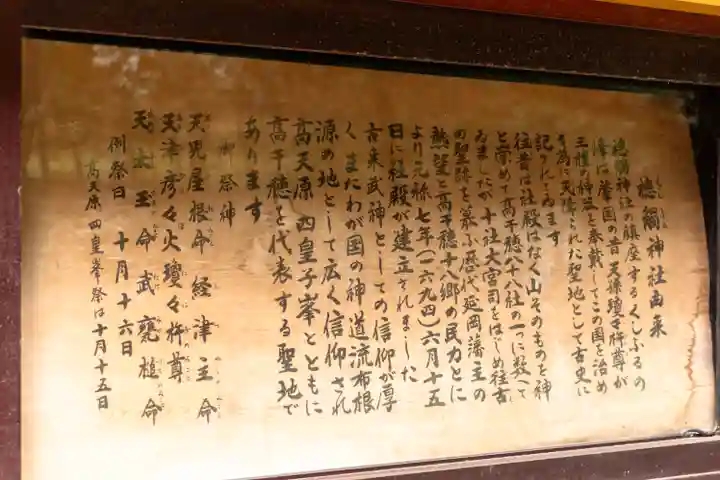 槵觸神社由来
槵觸神社の鎮座するくしふるの
峰は肇国の昔天孫瓊々杵尊が
三種の神器を奉戴してこの国を治め
る為に天降られた聖地として古史に
記されてゐます
往昔は社殿はなく山そのものを神
と崇めて高千穂八十八社の一つに数へて
ゐましたが十社大宮司をはじめ往古
の聖跡を慕ふ歴代延岡藩主の
熱望と高千穂十八郷の民力とに
より元禄七年(一六九四)六月十五
日に社殿が建立されました
古来武神としての信仰が厚
く またわが国の神道流布根
源の地として広く信仰され
高天原 四皇子峯とともに
高千穂を代表する聖地で
あります
御祭神
天児屋根命 経津主命
天津彦々火瓊々杵尊
天太玉命 武甕槌命
例祭日 十月十六日
高天原 四皇峯祭は十月十五日